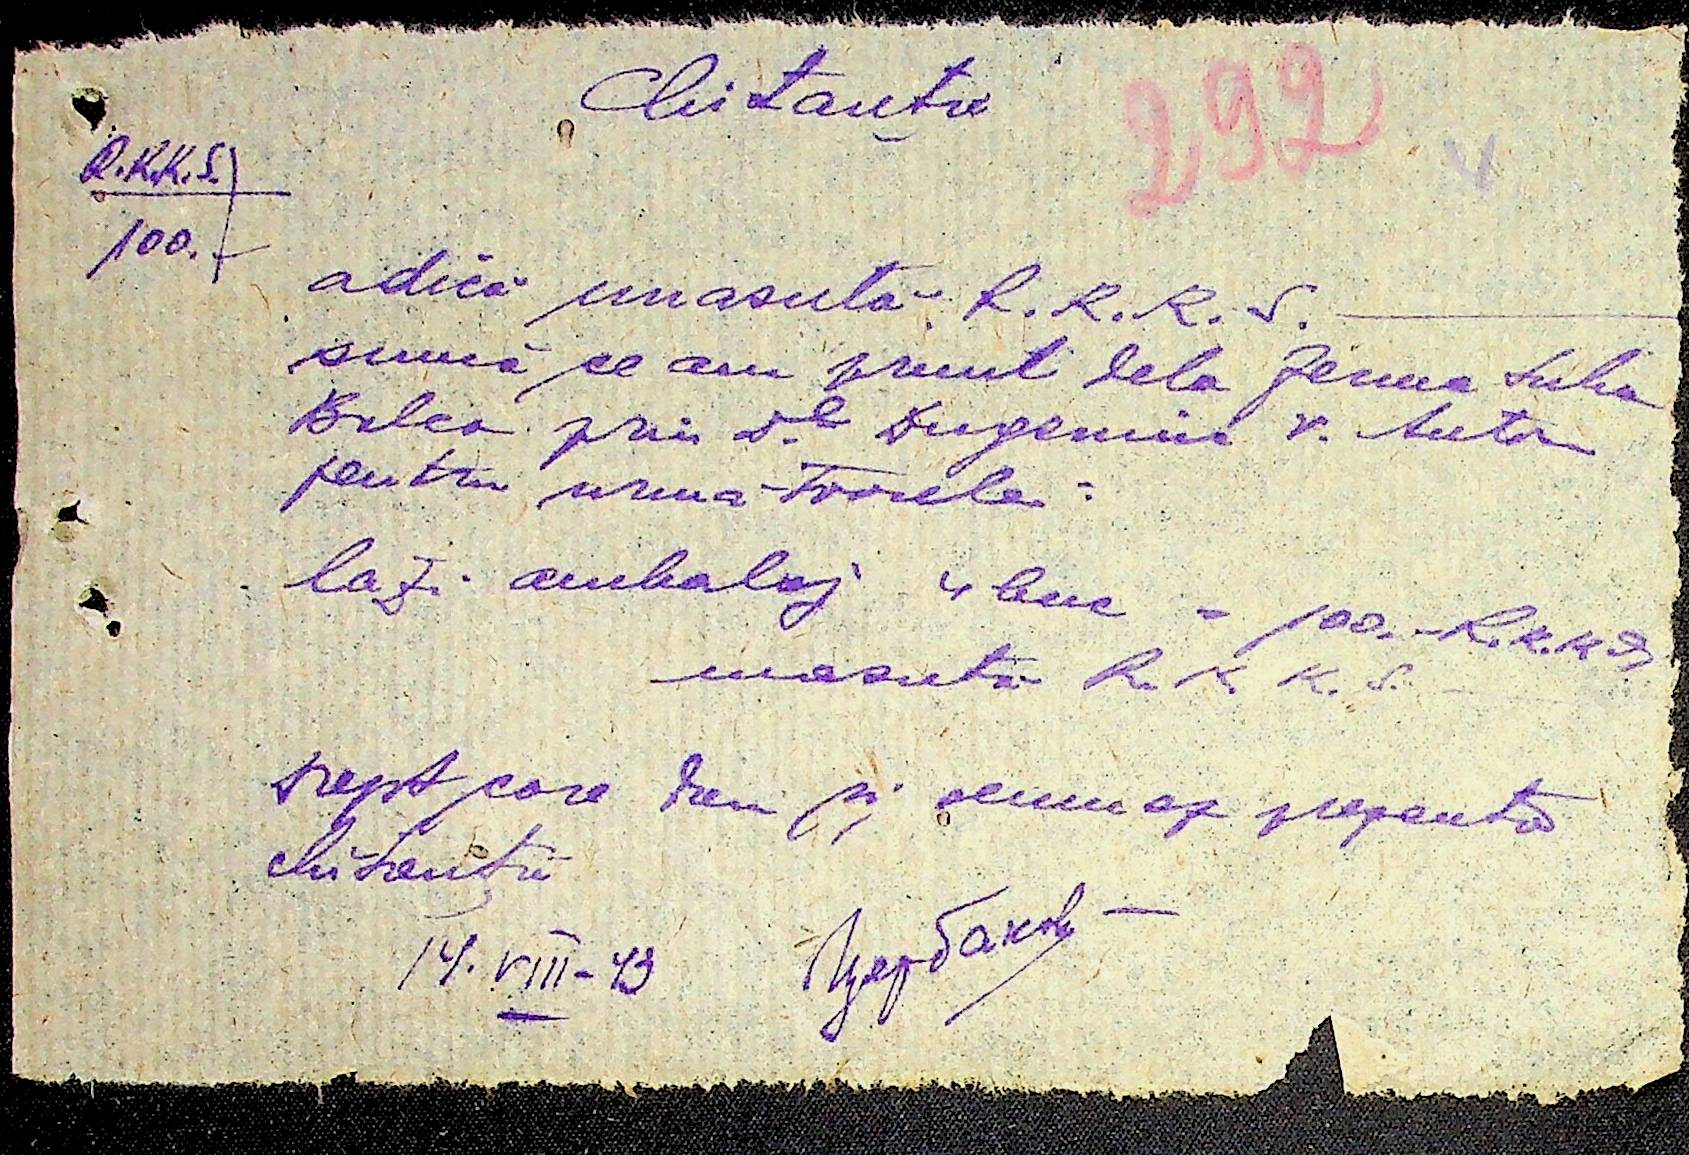 Chitanță
292
R.K.K.S.
100.-
adică unasută R.K.K.S.
sumă ce am primit dela Ferma Suha
Balca prin D.l Eugeniu V. Anton
pentru urmă-toarele:
lăzi ambalaj 4 buc = 100.- R.K.K.S.
unasută R.K.K.S.
Drept care dau și semnez prezenta
chitanță
14.VIII-43 Щербаков